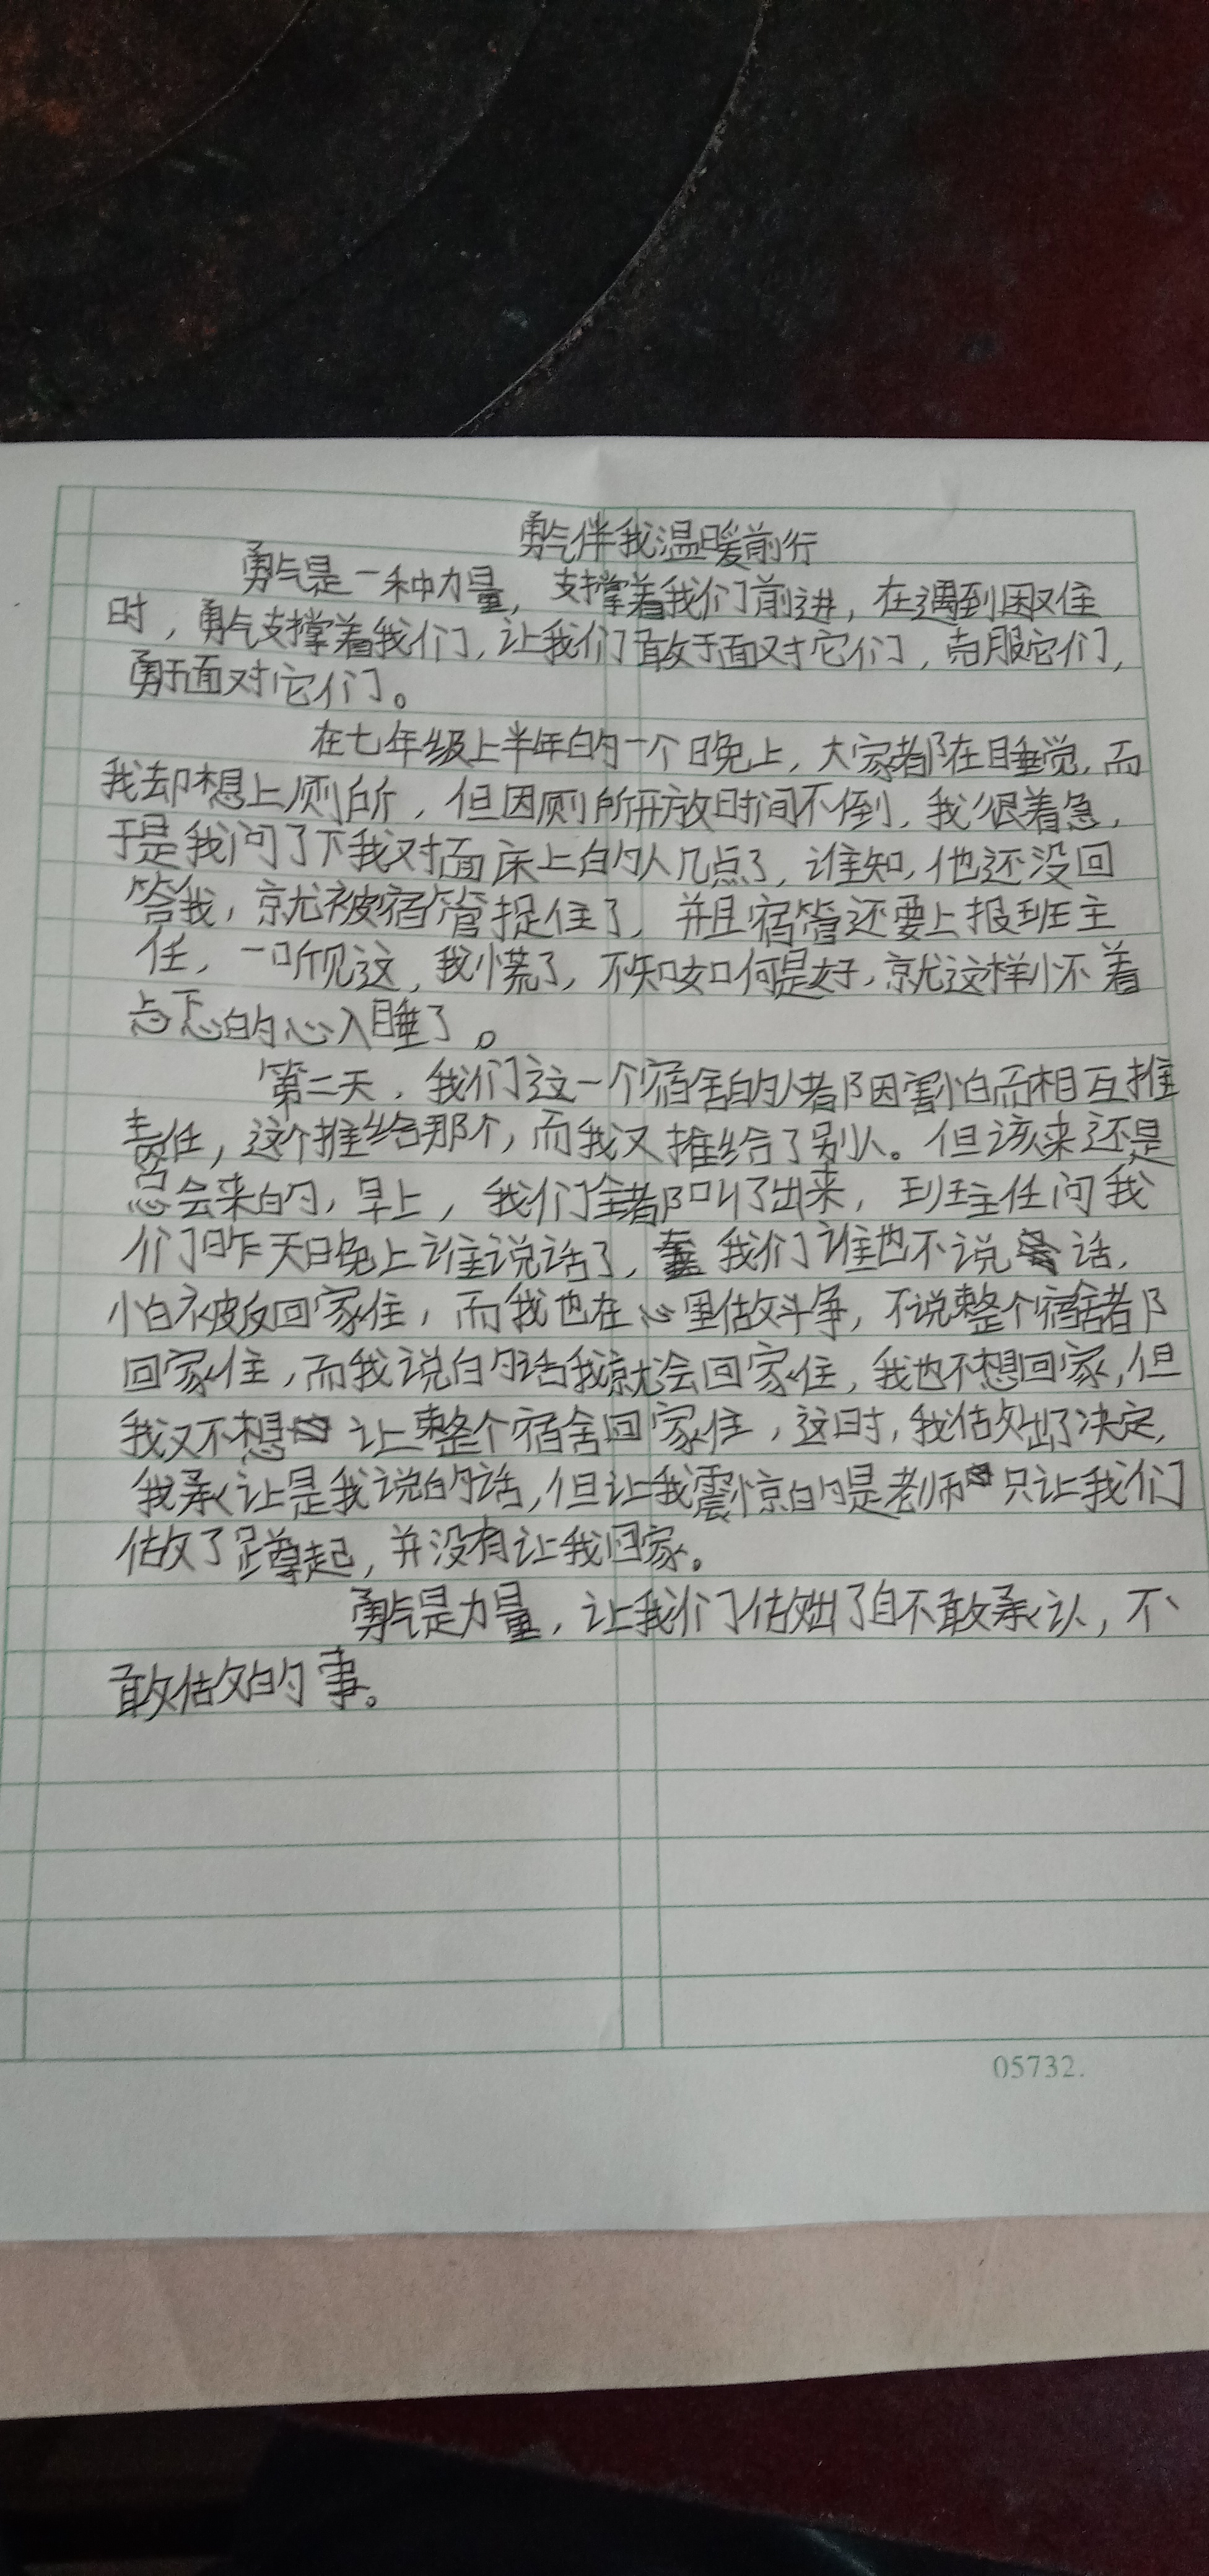 勇气伴我温暖前行
勇气是一种力量，支撑着我们前进，在遇到困难
时，勇气支撑着我们，让我们敢于面对它们，克服它们，
勇于面对它们。
在七年级上半年的一个晚上，大家都在睡觉，而
我却想上厕所，但因厕所开放时间不倒，我很着急，
于是我问了下我对面床上的人几点了，谁知，他还没回
答我，就被宿管捉住了，并且宿管还要上报班主
任，一听见这，我慌了，不知如何是好，就这样怀着
忐忑的心入睡了。
第二天，我们这一个宿舍的人都因害怕而相互推
责任，这个推给那个，而我又推给了别人。但该来还是
总会来的，早上，我们全都叫了出来，班主任问我
们昨天晚上谁说话了，我们谁也不说话，
怕被反回家住，而我也在心里做斗争，不说整个宿舍都
回家住，而我说的话我就会回家住，我也不想回家，但
我又不想让整个宿舍回家住，这时，我做出了决定，
我承让是我说的话，但让我震惊的是老师只让我们
做了蹲起，并没有让我回家。
勇气是力量，让我们做出了自不敢承认，不
敢做的事。
05732.